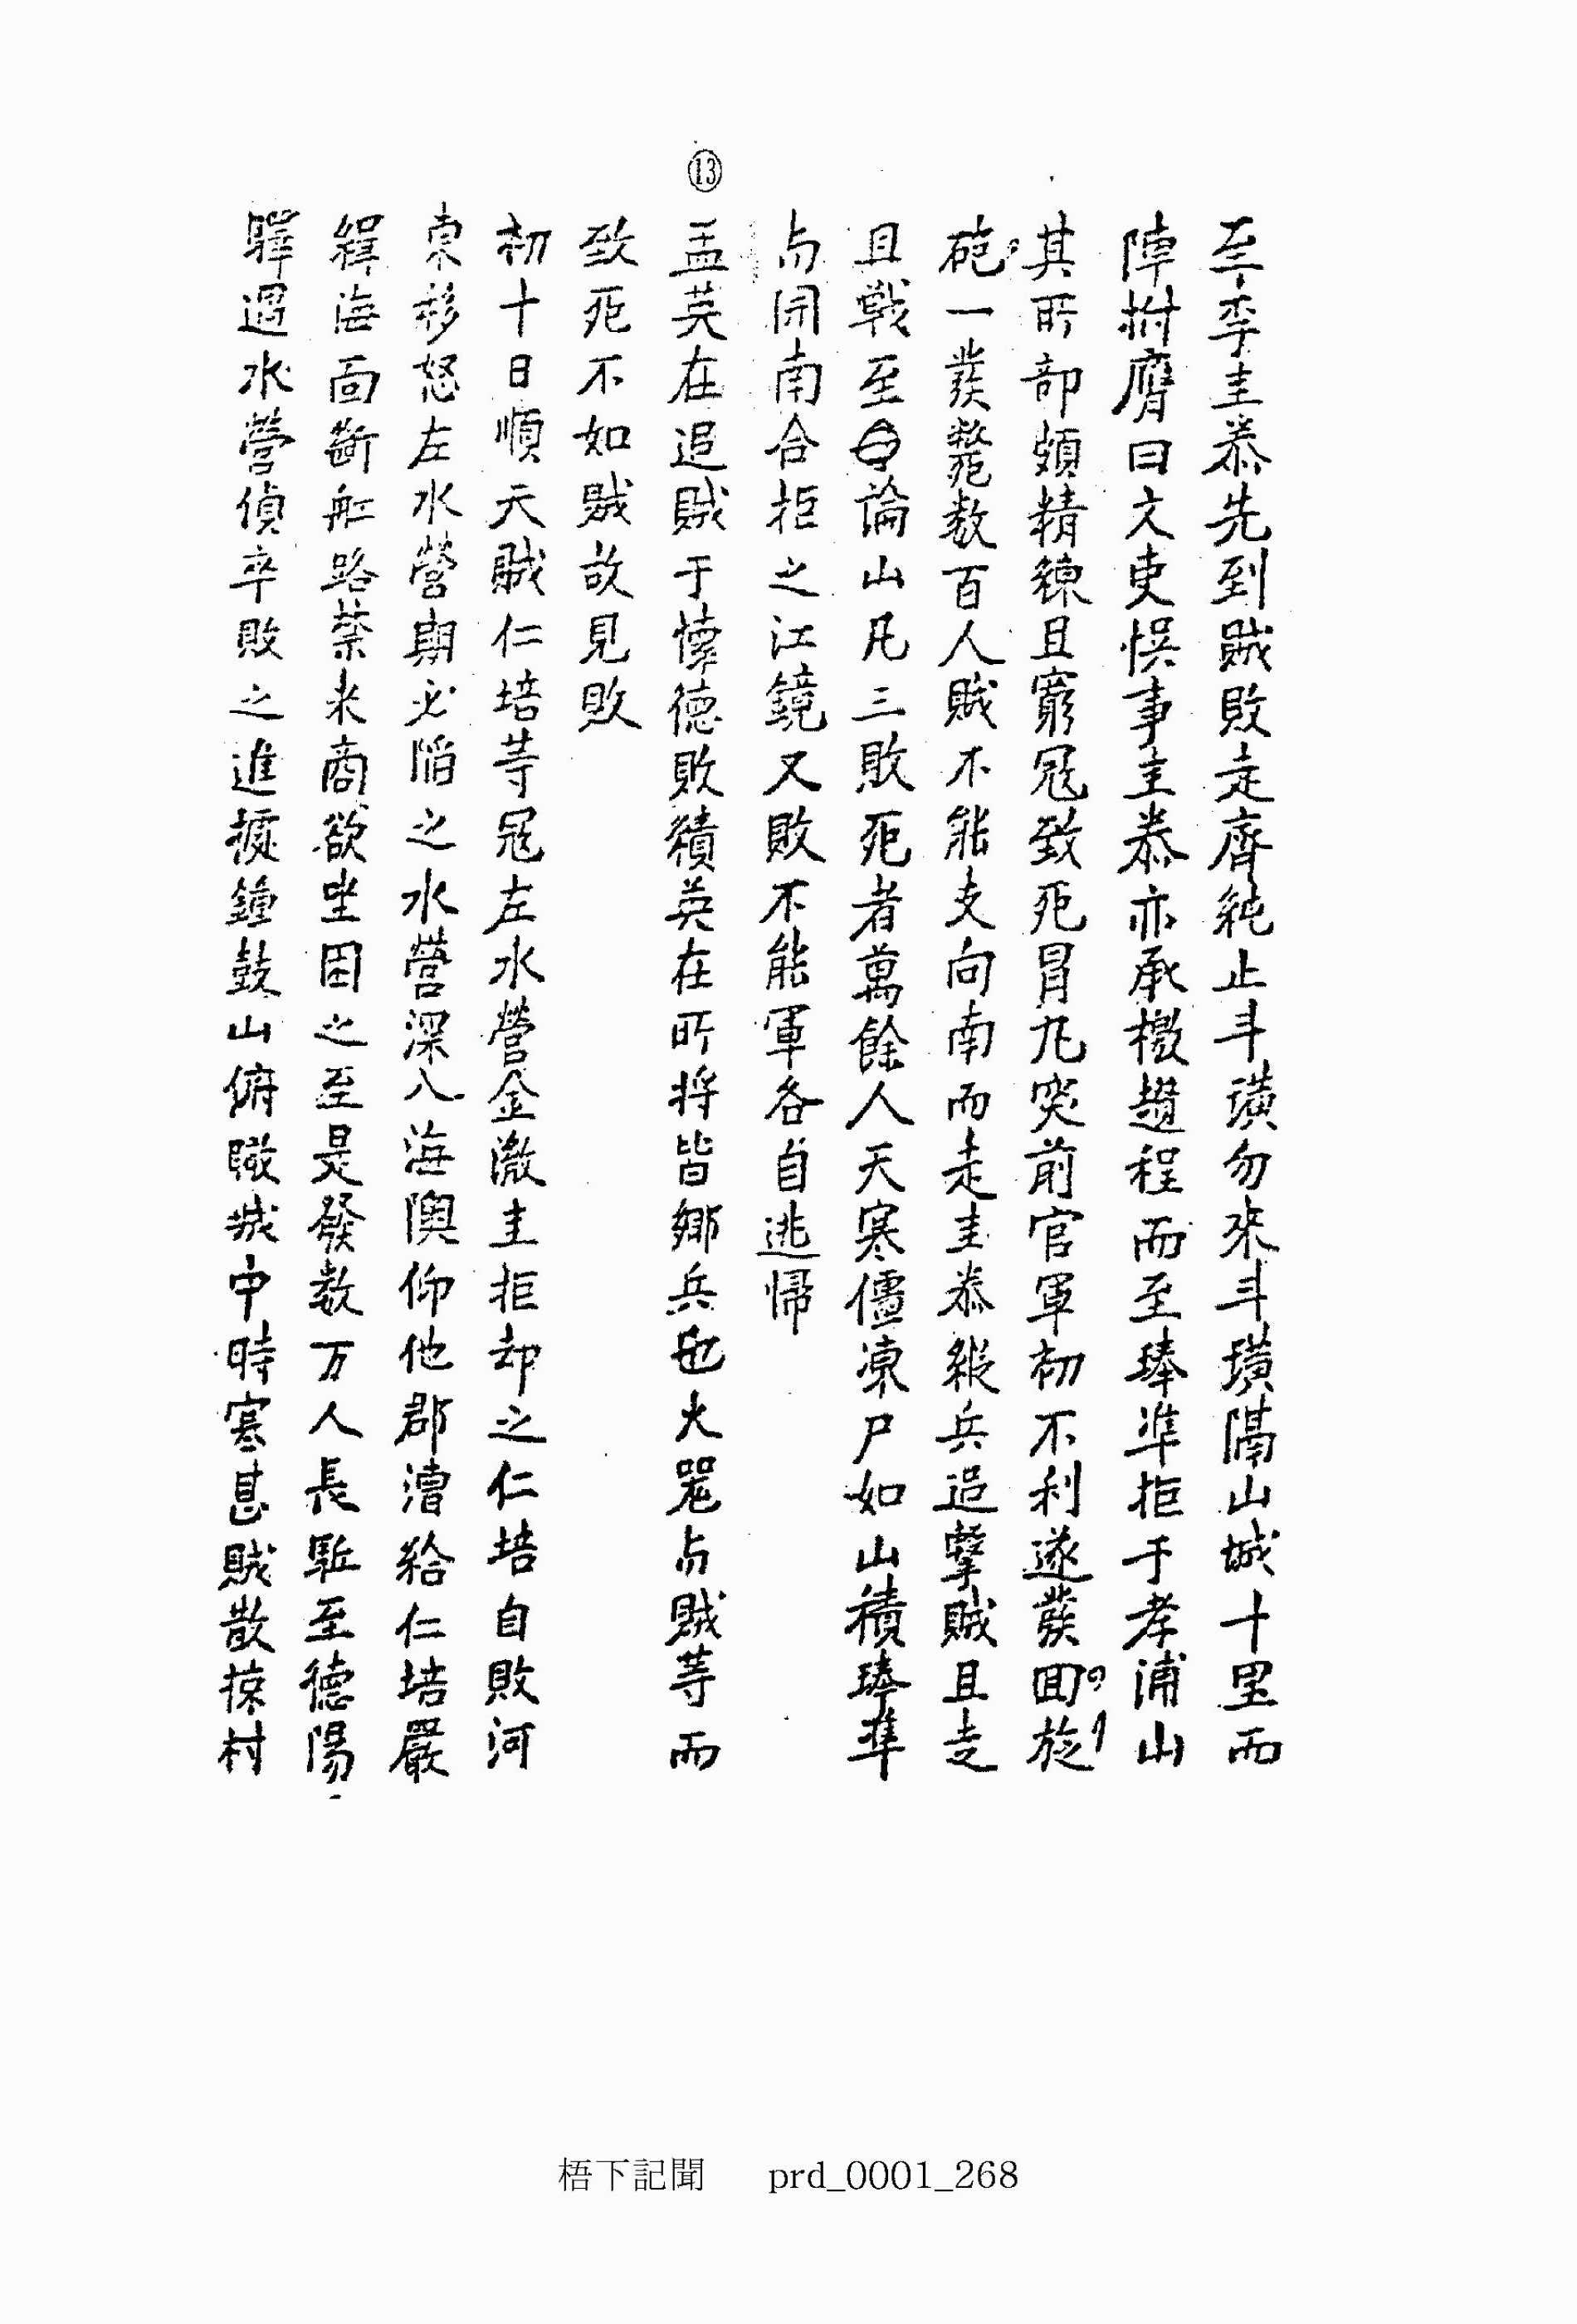 至李圭泰先到賊敗走齊純止斗璜勿來斗璜隔山城十里而
陣拊膺曰文吏悞事圭泰亦承檄趲程而至琫準拒于孝浦山
其所部頗精鍊且窮冦致死冒丸突前官軍初不利遂發回旋
砲一發斃死数百人賊不能支向南而走圭泰縱兵追擊賊且走
且戰至論山凡三敗死者萬餘人天寒僵凍尸如山積琫準
与開南合拒之江鏡又敗不能軍各自逃歸
⑬
孟英在追賊于懷德敗績英在所將皆鄉兵也火器与賊等而
致死不如賊故見敗
初十日順天賊仁培等冦左水營金澈圭拒却之仁培自敗河
東移怒左水營期必陷之水營深入海隩仰他郡漕給仁培嚴
緝海面斷舡路禁米商欲坐困之至是發数万人長駈至德陽
驛過水營偵卒敗之進據鍾鼓山俯瞰城中時寒甚賊散掠村
梧下記聞 prd_0001_268